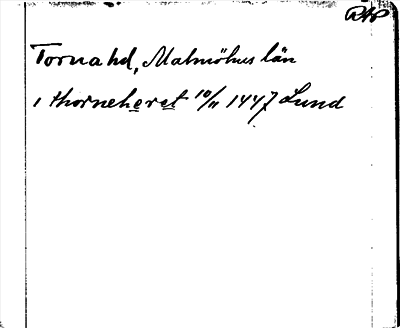 Torna hd, Malmöhus län
i thorneheret 10/11 1447 Lund